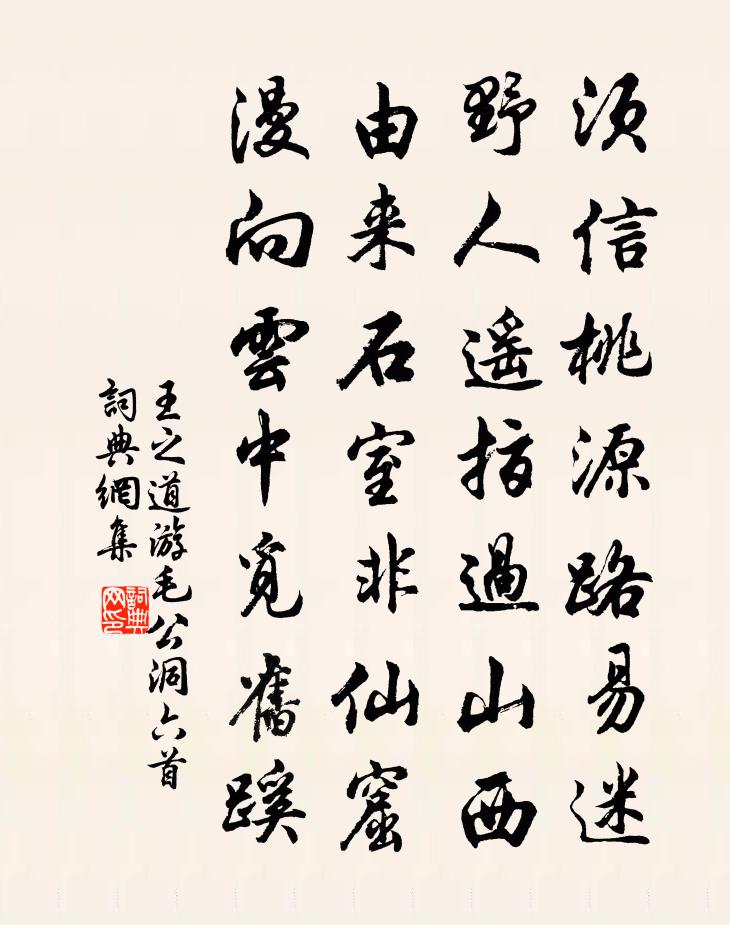 须信桃源路易迷
野人遥指過山西
由来石室非仙窟
漫向雲中覓舊蹊
王之道游毛公洞六首
詞典網集
詞典网印